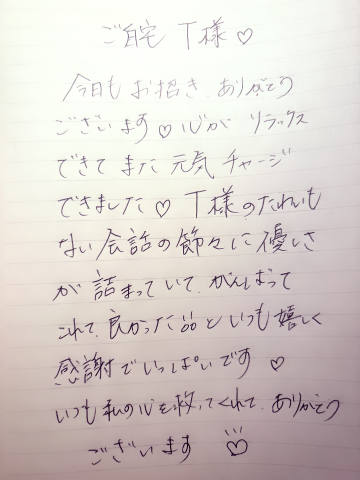 ご自宅 T様♡
今日も お招き ありがとう
ございます♡心が リラックス
できて また 元気 チャージ
できました♡ T様のたわいも
ない会話の節々に優しさ
が 詰まっていて、がんばって
これて、良かった品といつも嬉しく
感謝でいっぱいです ♡
いつも私の心を救ってくれて、ありがとう
ございます ♡